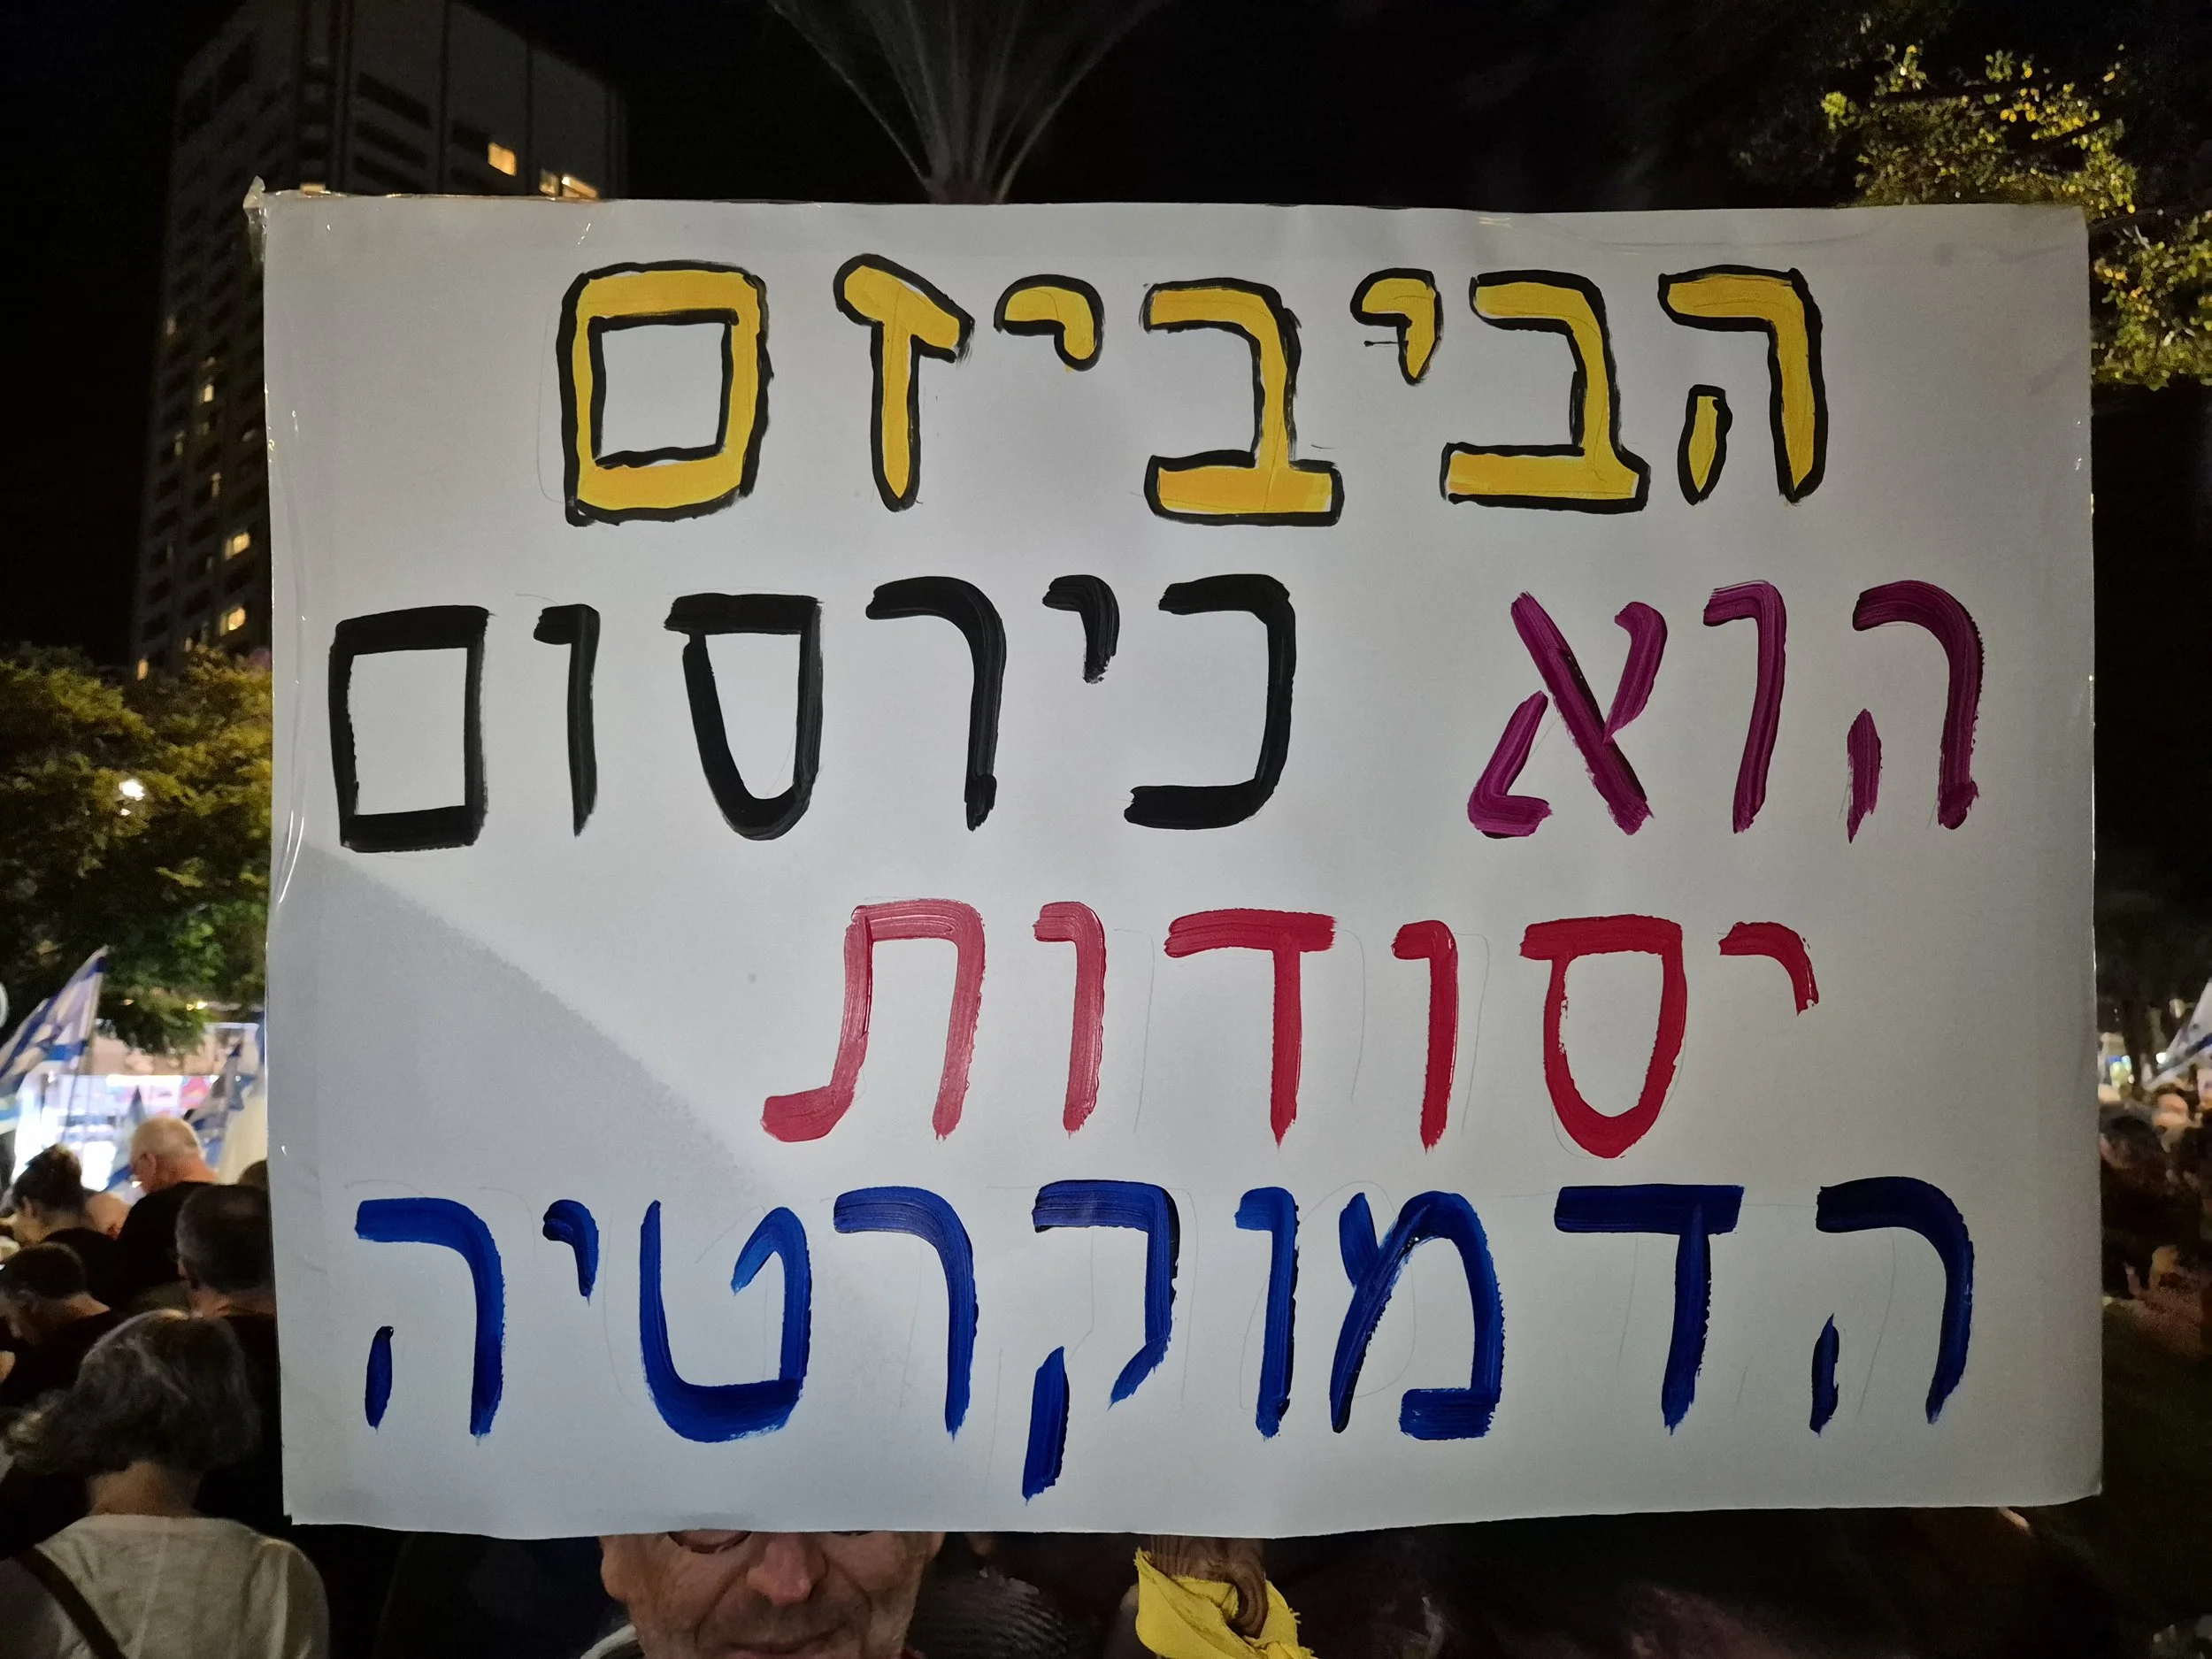 הביביזם
הוא כירסום
יסודות
הדמוקרטיה